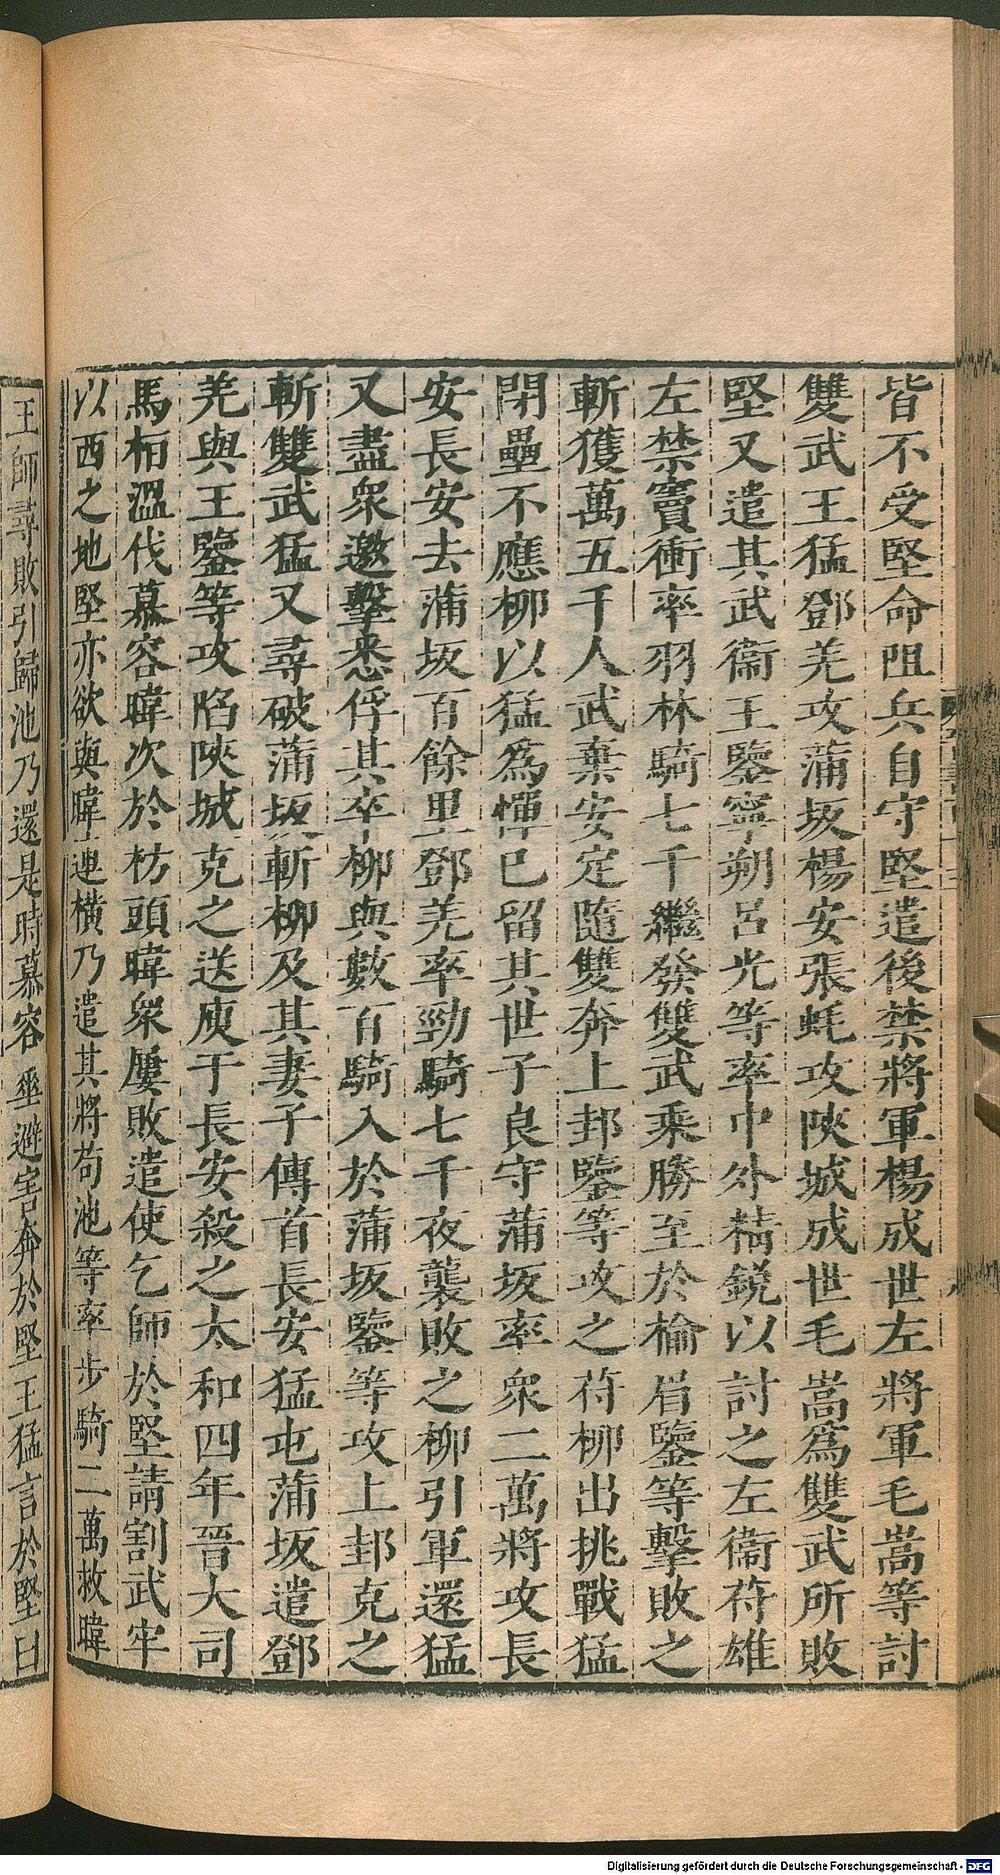 皆不受堅命阻兵自守堅遣後禁將軍楊成世左將軍毛嵩等討
雙武王猛鄧羌攻蒲坂楊安張蚝攻陝城成世毛嵩爲雙武所敗
堅又遣其武衞王鑒寧朔呂光等率中外精銳以討之左衞苻雄
左禁竇衝率羽林騎七千繼發雙武乘勝至於楡眉鑒等擊敗之
斬獲萬五千人武棄安定隨雙奔上邽鑒等攻之苻柳出挑戰猛
閉壘不應柳以猛爲憚已留其世子良守蒲坂率衆二萬將攻長
安長安去蒲坂百餘里鄧羌率勁騎七千夜襲敗之柳引軍還猛
又盡衆邀擊悉俘其卒柳與數百騎入於蒲坂鑒等攻上邽克之
斬雙武猛又尋破蒲坂斬柳及其妻子傳首長安猛屯蒲坂遣鄧
羌與王鑒等攻陷陝城克之送庾于長安殺之太和四年晉大司
馬桓溫伐慕容暐次於枋頭暐衆屢敗遣使乞師於堅請割武牢
以西之地堅亦欲與暐連橫乃遣其將苟池等率步騎二萬救暐
王師尋敗引歸池乃還是時慕容垂避害奔於堅王猛言於堅曰
Digitalisierung gefördert durch die Deutsche Forschungsgemeinschaft - DFG